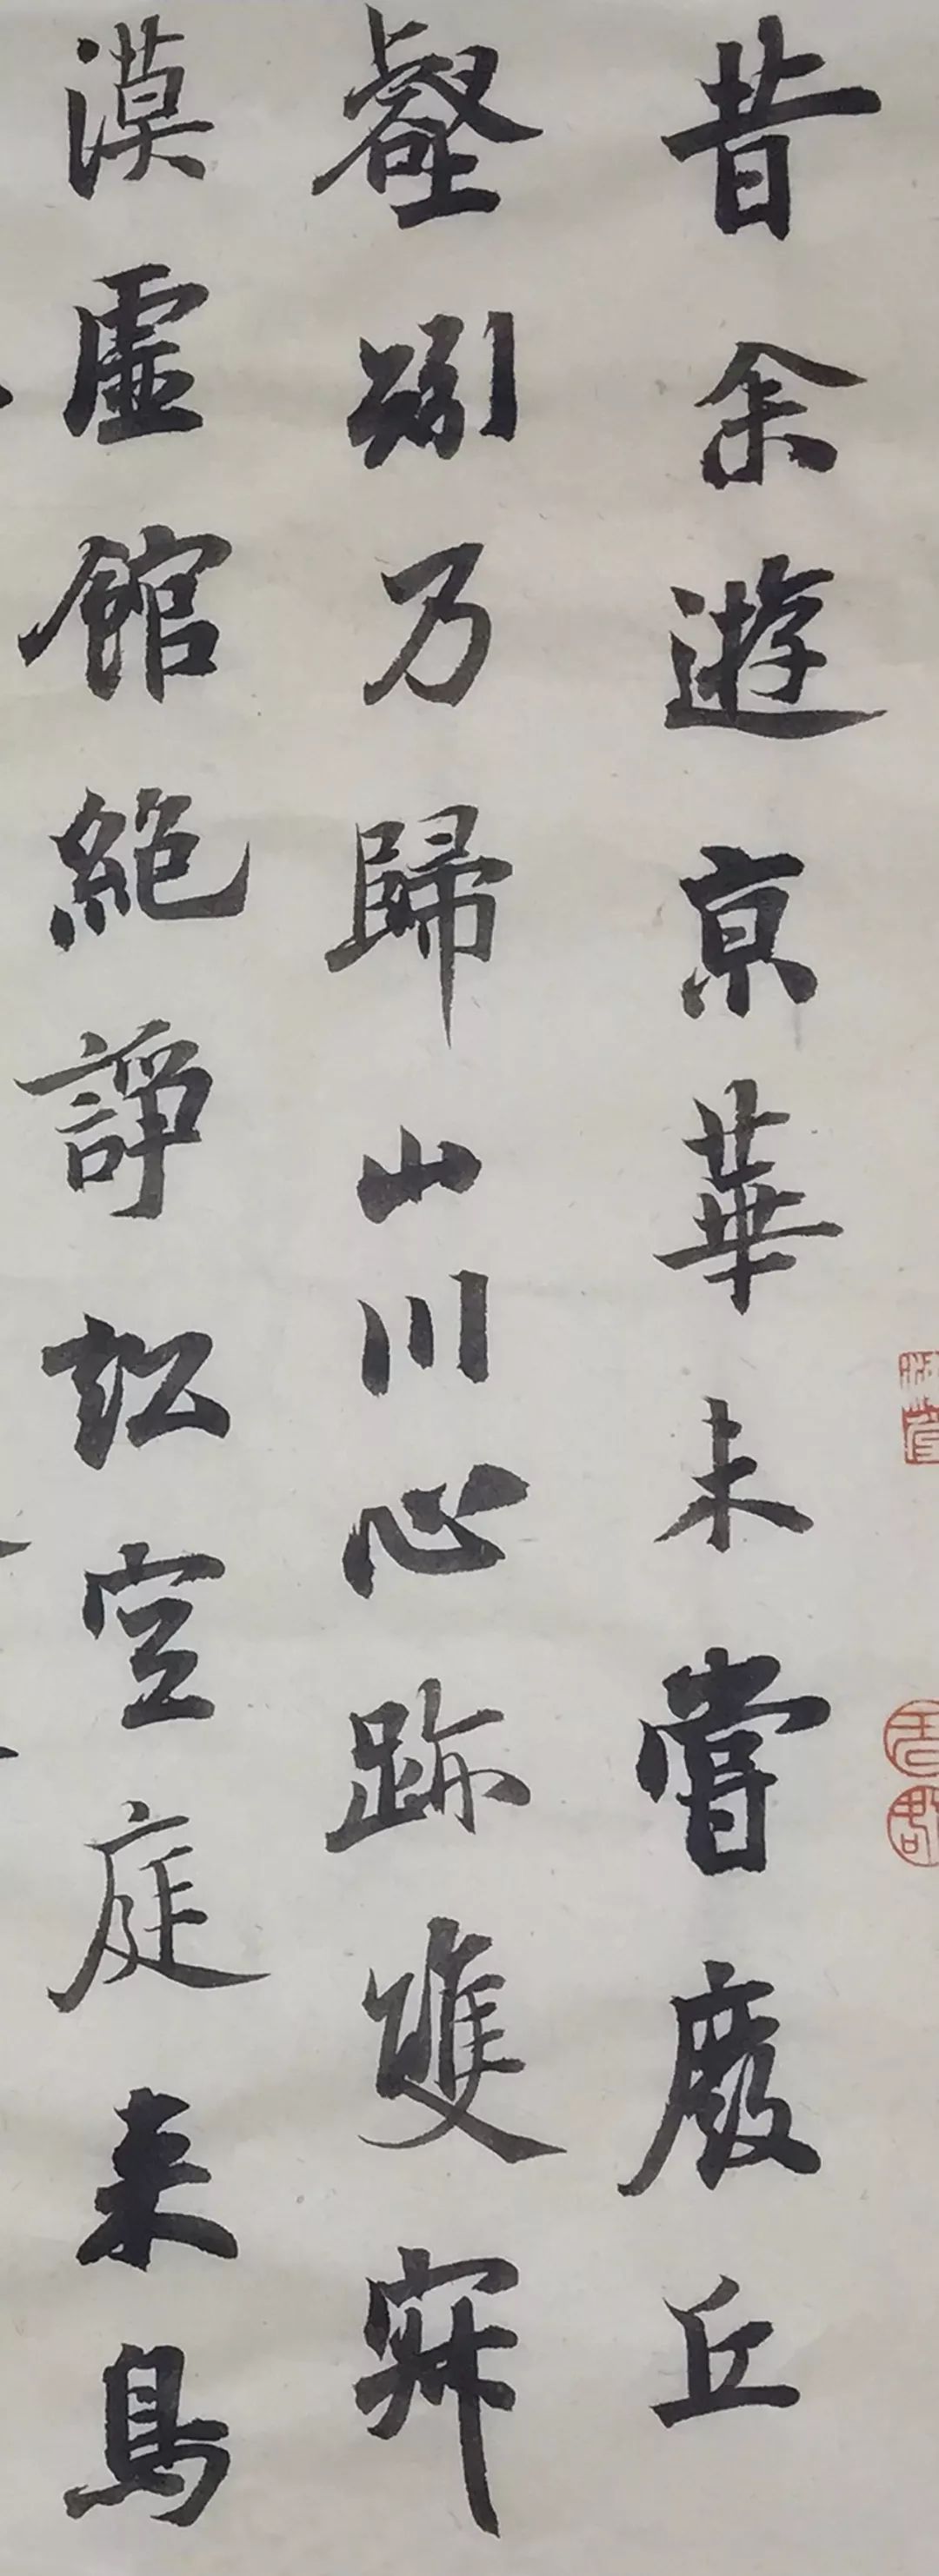 昔余遊京華未嘗廢丘
壑矧乃歸山川心跡雙寂
漠虛館絕諍訟空庭来鳥